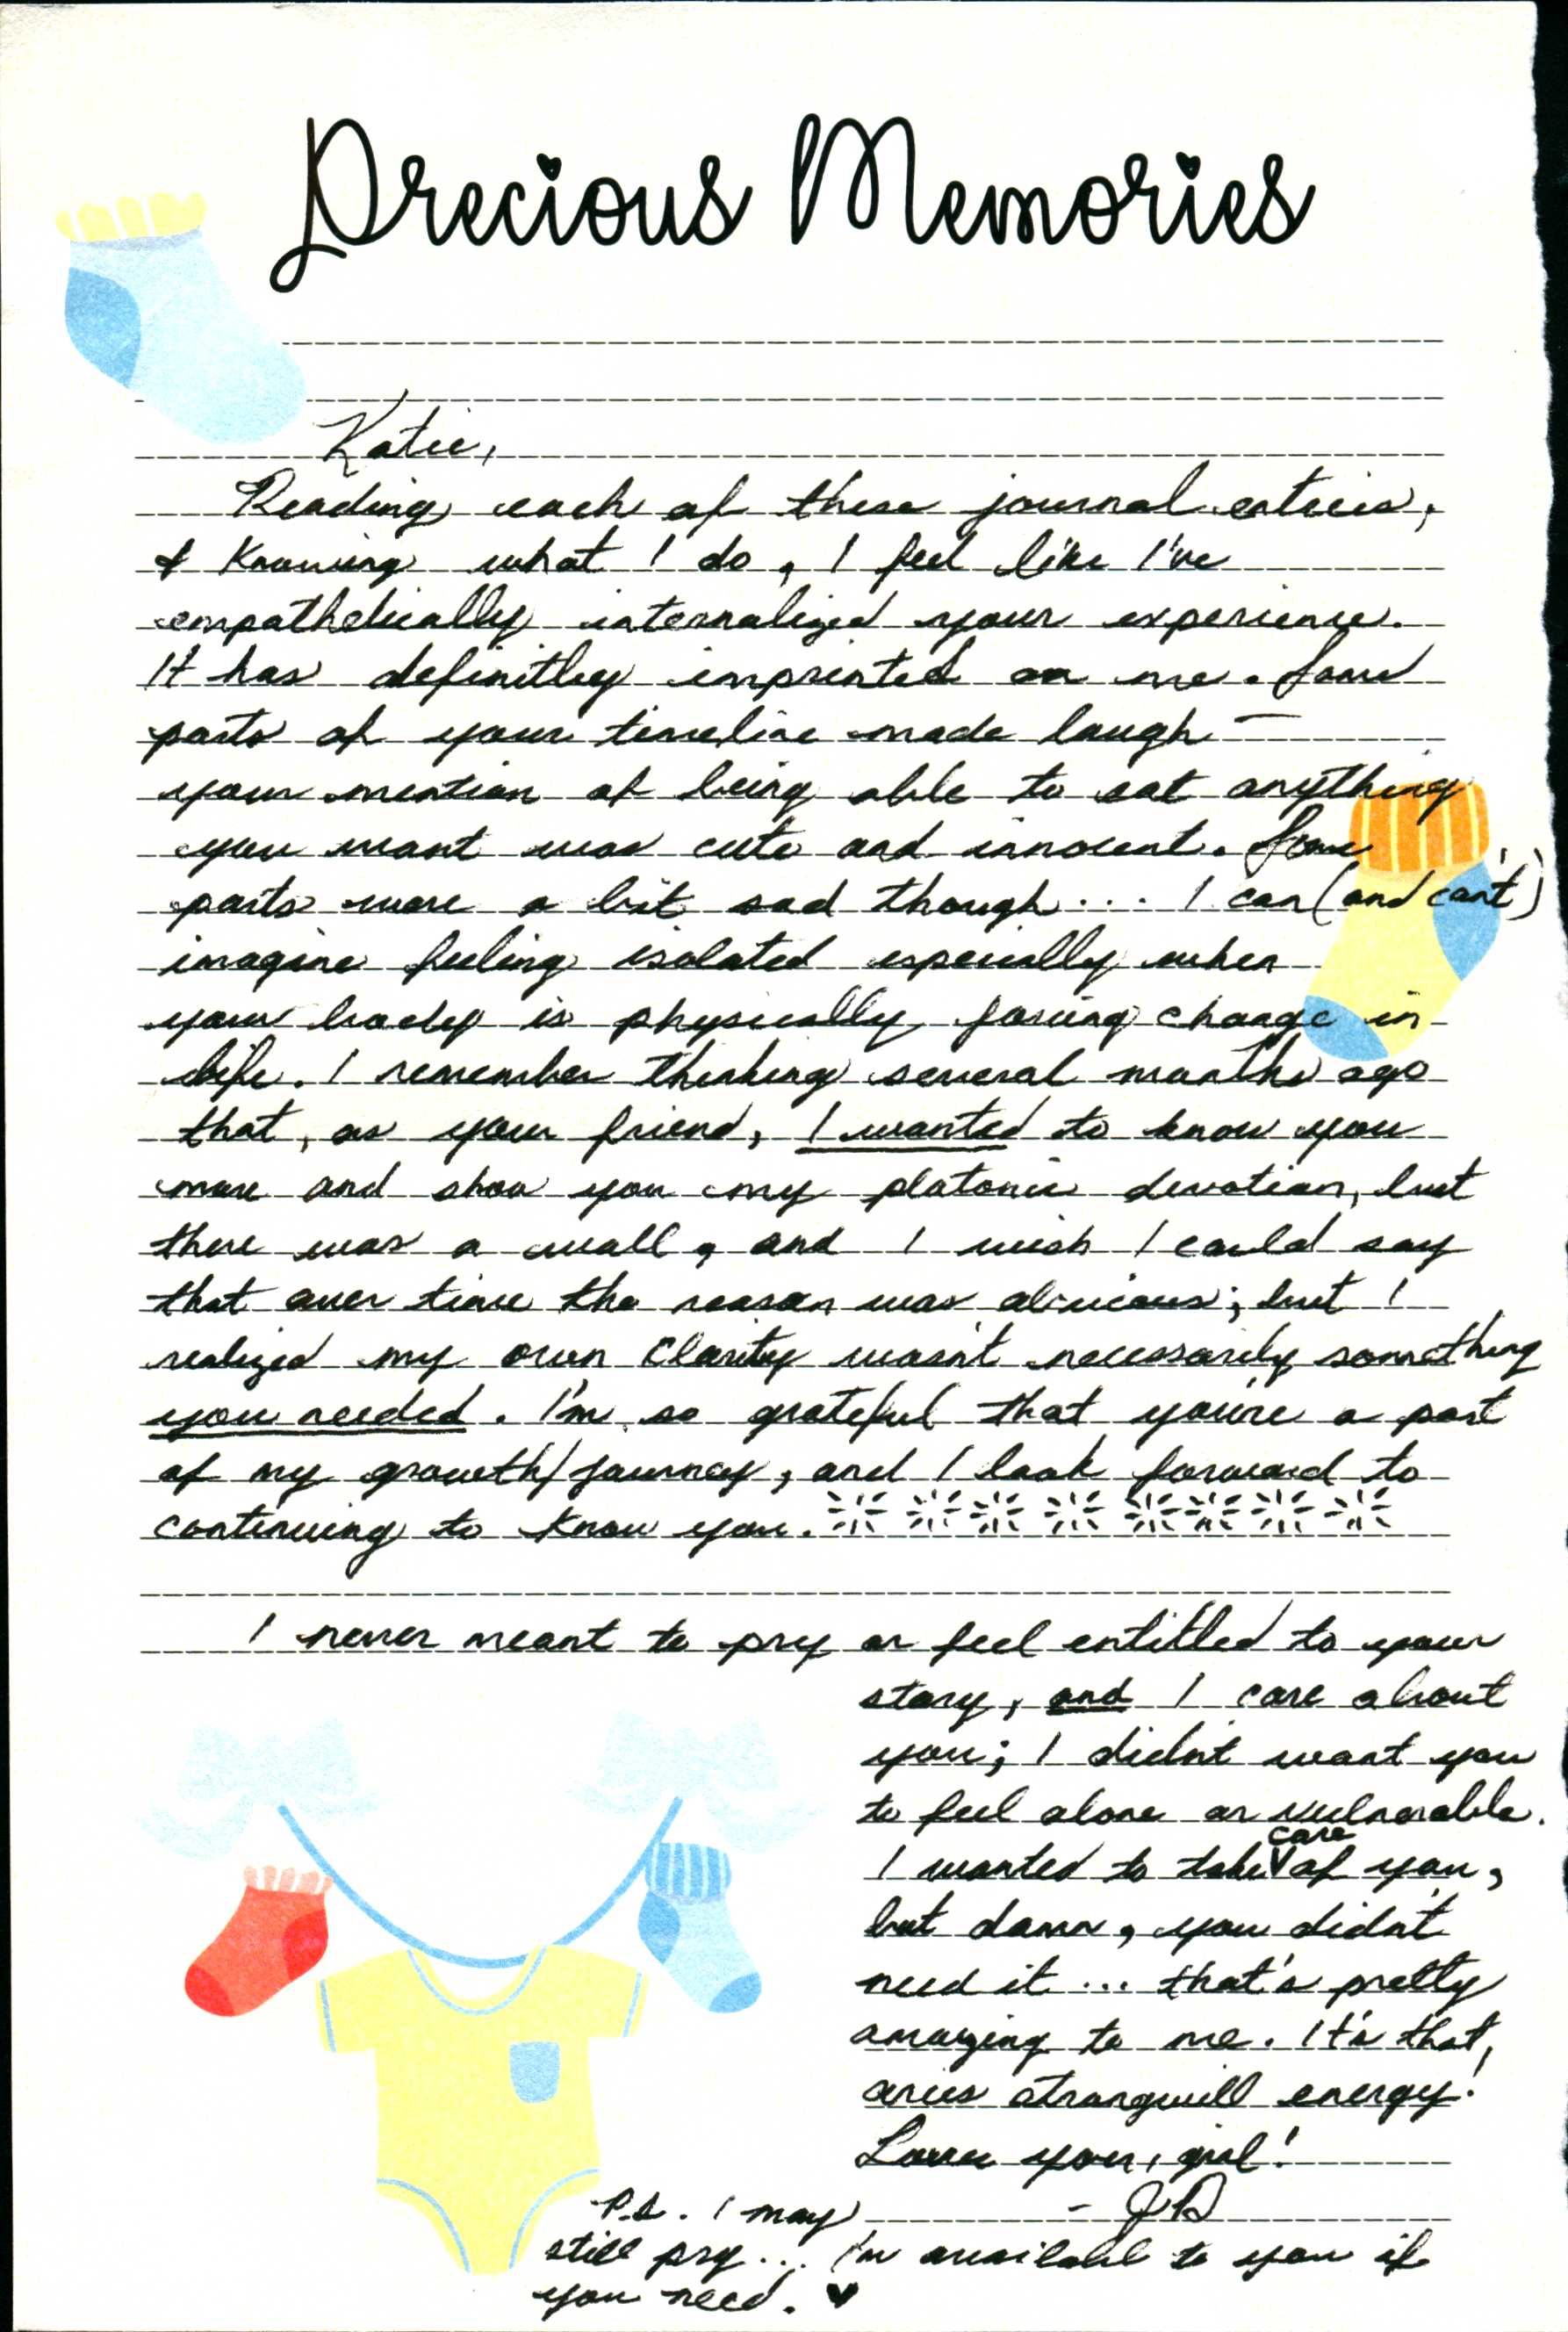 Precious Memories
Katie,
Reading each of these journal entries,
& knowing what I do, I feel like I've
empathetically internalized your experience.
It has definitley imprinted on me. Some
parts of your timeline made laugh —
your mention of being able to eat anything
you want was cute and innocent. Some
parts were a bit sad though... I can (and can't)
imagine feeling isolated especially when
your body is physically forcing change in
life. I remember thinking several months ago
that, as your friend, I wanted to know you
more and show you my platonic devotion, but
there was a wall, and I wish I could say
that over time the reason was obvious; but I
realized my own clarity wasn't necessarily something
you needed. I'm so grateful that you're a part
of my growth/journey, and I look forward to
continuing to know you.
I never meant to pry or feel entitled to your
story, and I care about
you; I didn't want you
to feel alone or vulnerable.
I wanted to take care of you,
but damn, you didn't
need it... that's pretty
amazing to me. It's that,
aries strongwill energy!
Love you, girl!
- JD
P.S. I may
still pry... I'm availabl to you if
you need. ♥